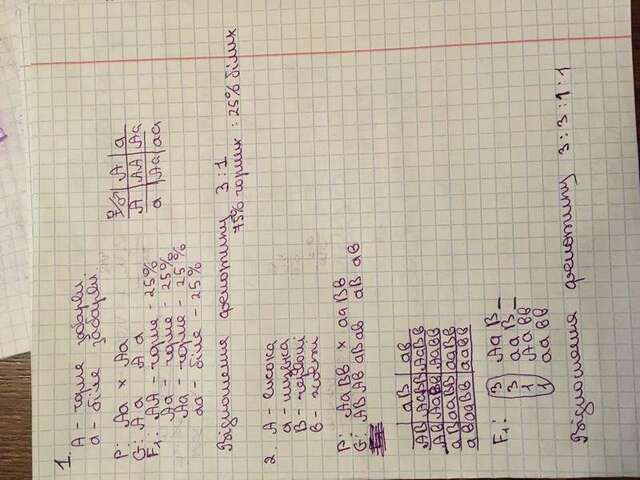 1. А - чорне забарвл.
а - біле забарвл.
P: Аа × Аа
G: А а А а
F₁: АА - чорне - 25%
Аа - чорне - 25%
Аа - чорне - 25%
аа - біле - 25%
♀/♂ | А | а
А | АА | Аа
а | Аа | аа
Відношення фенотипу 3 : 1
75% чорних : 25% білих
2. А - висока
а - низька
В - червоні
в - жовті
P: АаВв × ааВв
G: АВ Ав аВ ав аВ ав
аВ | ав
АВ | АаВВ | АаВв
Ав | АаВв | Аавв
аВ | ааВВ | ааВв
ав | ааВв | аавв
F₁: 3 АаВ–
3 ааВ–
1 Аавв
1 аавв
Відношення фенотипу 3 : 3 : 1 : 1